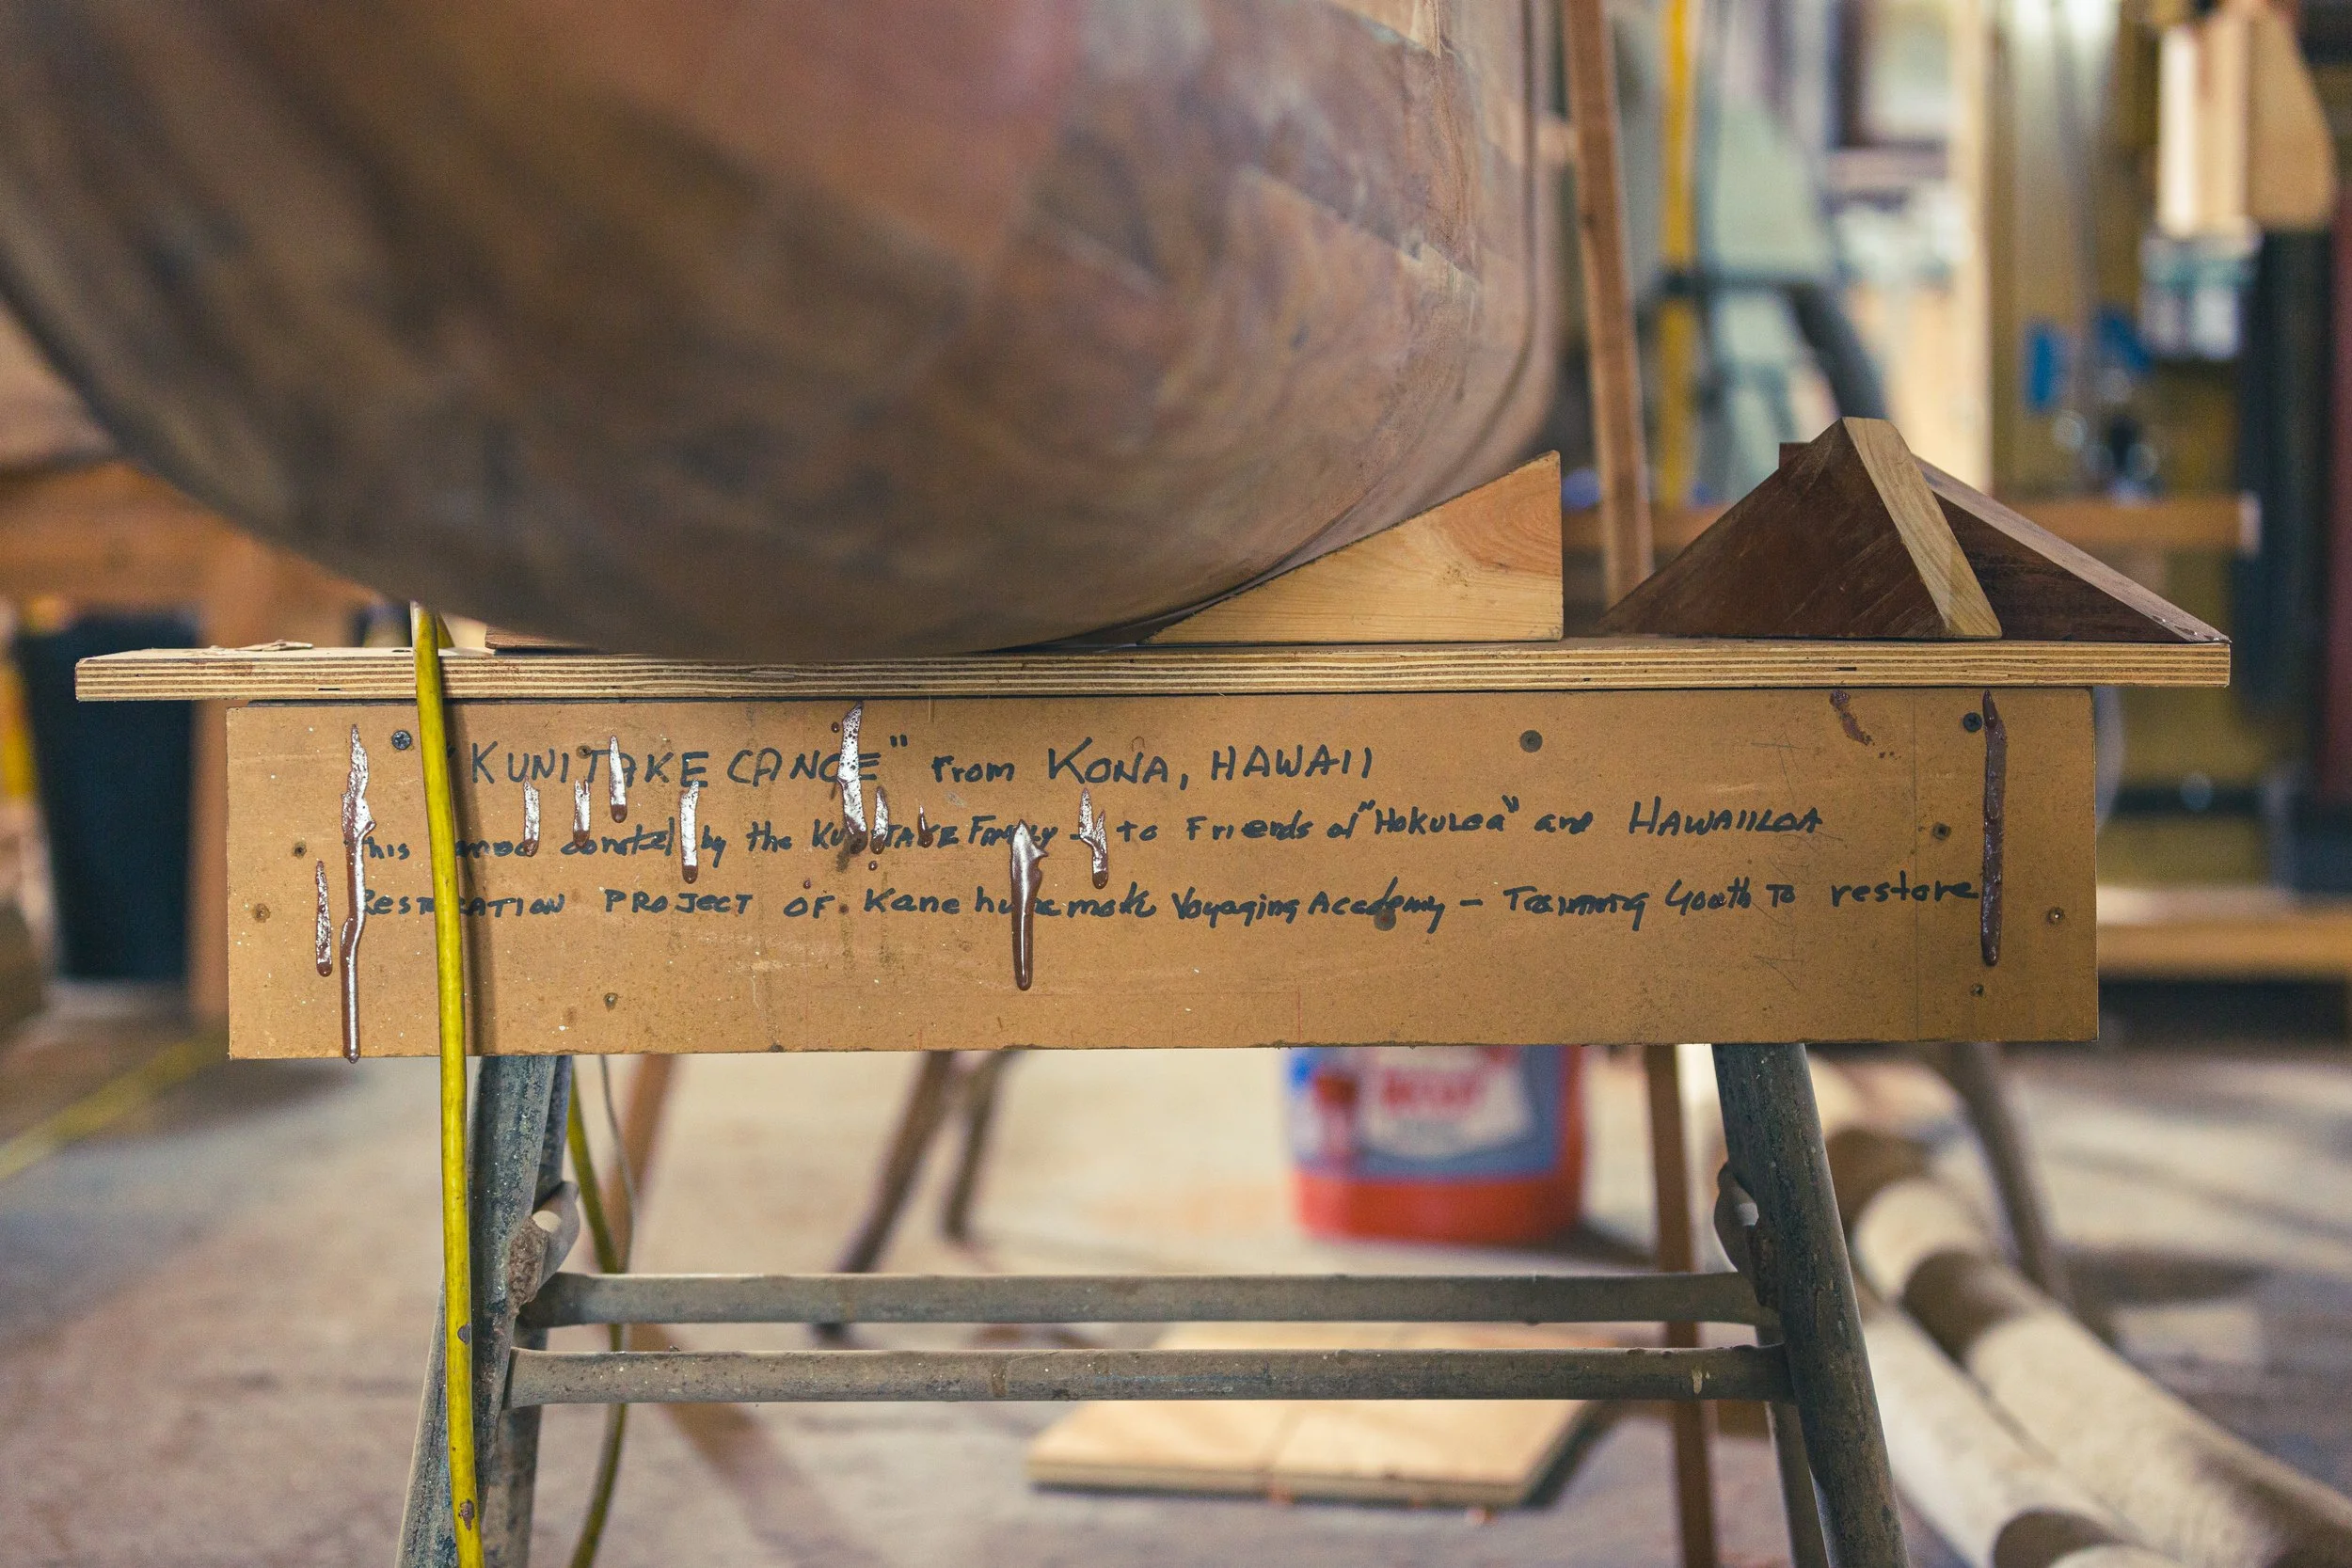 "KUNITAKE CANOE" From KONA, HAWAII
This canoe donated by the KUNITAKE FAMILY - to Friends of "Hokulea" and HAWAIILOA
RESTORATION PROJECT OF Kanehunamoku Voyaging Academy - Training Youth To restore